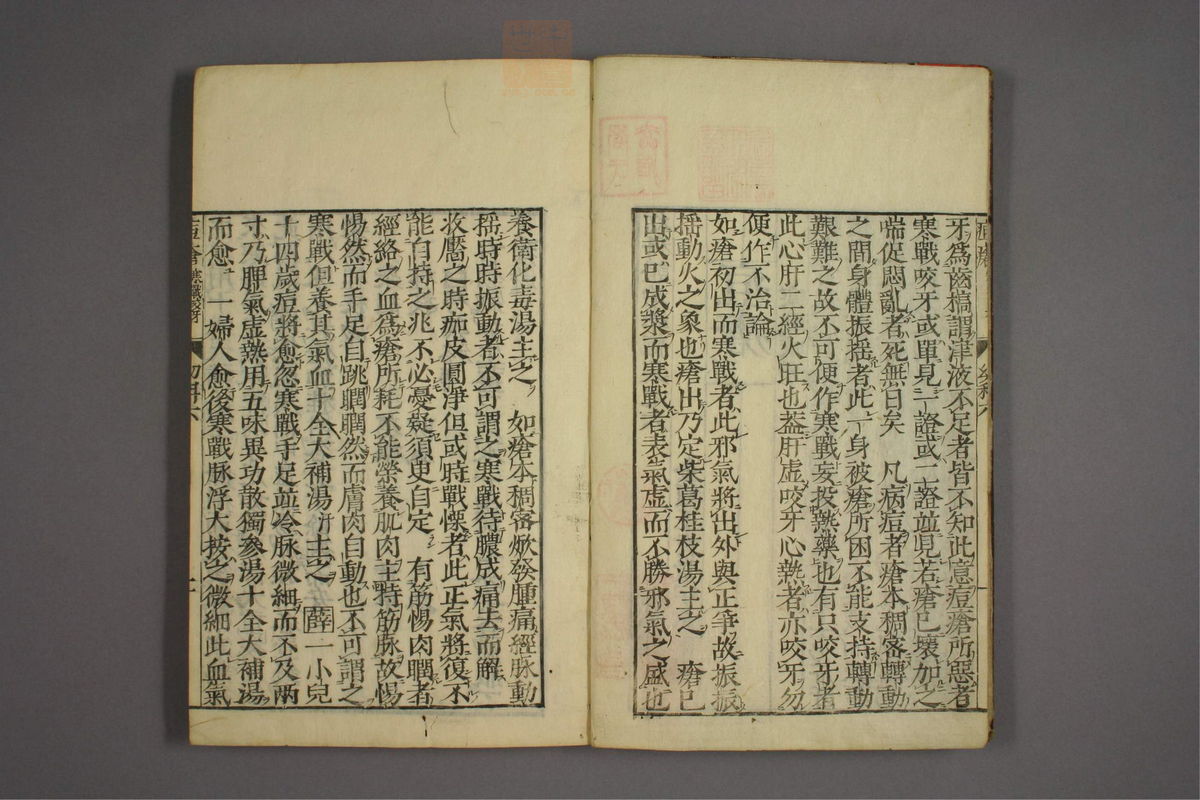 牙爲齒槁謂津液不足者皆不知此意痘瘡所惡者
寒戰咬牙或單見一證或二證並見若瘡已壞加之
喘促悶亂者死無日矣　凡病痘者瘡本稠密轉動
之間身體振摇者此一身被瘡所困不能支持轉動
艱難之故不可便作寒戰妄投熱藥也有只咬牙者
此心肝二經火旺也蓋肝虚咬牙心熱者亦咬牙勿
便作不治論
如瘡初出而寒戰者此邪氣將出外與正爭故振振
揺動火之象也瘡出乃定柴葛桂枝湯主之　瘡已
出或已成漿而寒戰者表氣虚而不勝邪氣之盛也
養衛化毒湯主之　如瘡本稠密焮發腫痛經脉動
揺時時振動者不可謂之寒戰待膿成痛去而解
收靨之時痂皮圓淨但或時戰慄者此正氣將復不
能自持之兆不必憂疑須臾自定　有筋惕肉瞤者
經絡之血爲瘡所耗不能榮養肌肉主持筋脉故惕
惕然而手足自跳瞤瞤然而膚肉自動也不可謂之
寒戰但養其氣血十全大補湯主之　薛　一小兒
十四歲痘將愈忽寒戰手足並冷脉微細而不及兩
寸乃脾氣虚熱用五味異功散獨參湯十全大補湯
而愈　一婦人愈後寒戰脉浮大按之微細此血氣